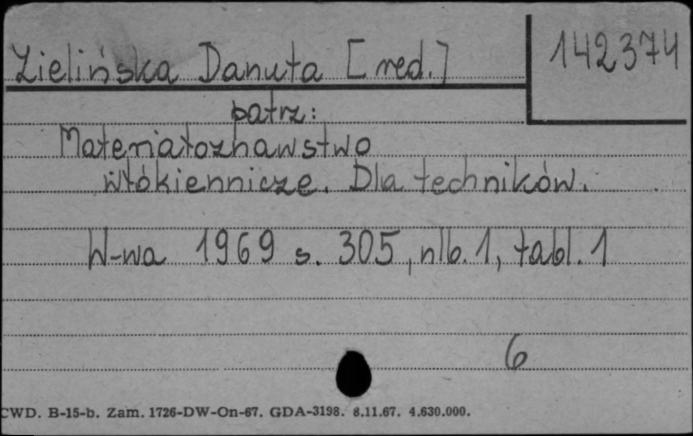 Zielińska Danuta [red.]
142374
patrz:
Materiałoznawstwo
włókiennicze. Dla techników.
W-wa 1969 s. 305, nlb. 1, tabl. 1
6
CWD. B-15-b. Zam. 1726-DW-On-67. GDA-3198. 8.11.67. 4.630.000.